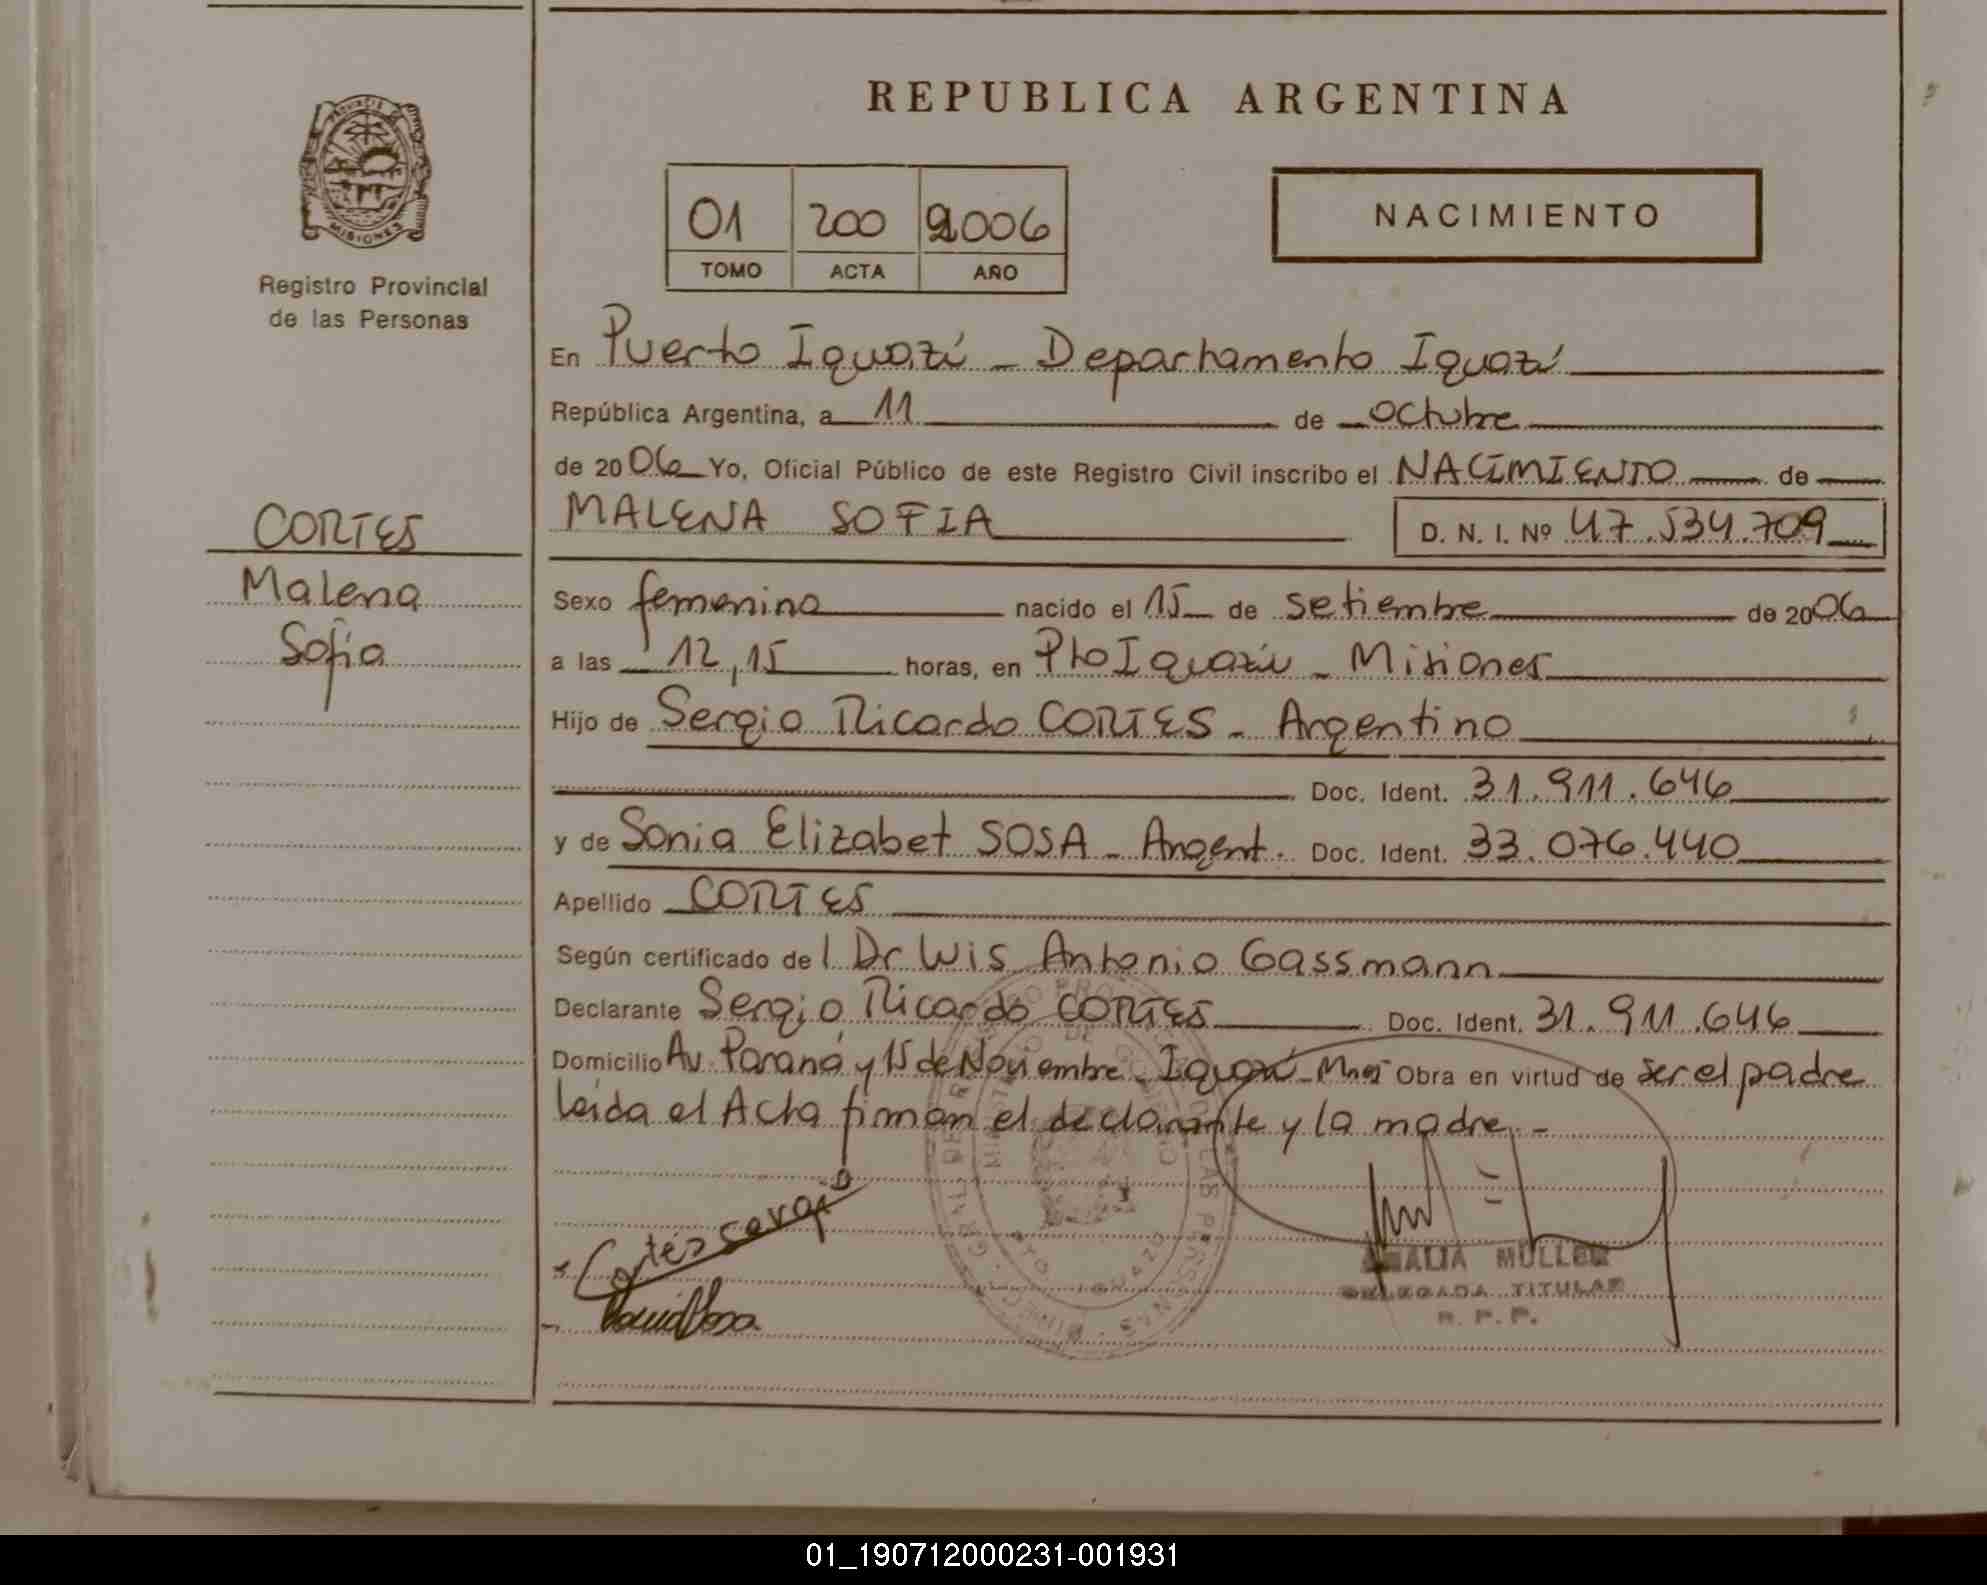 REPUBLICA ARGENTINA
01 200 2006
TOMO ACTA AÑO
NACIMIENTO
PROVINCIA MISIONES
Registro Provincial
de las Personas
CORTES
Malena
Sofia
En Puerto Iguazú - Departamento Iguazú
República Argentina, a 11 de octubre
de 2006 Yo, Oficial Público de este Registro Civil inscribo el NACIMIENTO de
MALENA SOFIA D. N. I. Nº 47.534.709
Sexo femenino nacido el 15 de setiembre de 2006
a las 12,15 horas, en Pto Iguazú - Misiones
Hijo de Sergio Ricardo CORTES - Argentino
Doc. Ident. 31.911.646
y de Sonia Elizabet SOSA - Argent. Doc. Ident. 33.076.440
Apellido CORTES
Según certificado del Dr Luis Antonio Gassmann
Declarante Sergio Ricardo CORTES Doc. Ident. 31.911.646
Domicilio Av. Paraná y 15 de Noviembre - Iguazú - Mnes Obra en virtud de ser el padre
leida el Acta firman el declarante y la madre. -
Cortés Sergio
AMALIA MÜLLER
DELEGADA TITULAR
R. P. P.
01_190712000231-001931